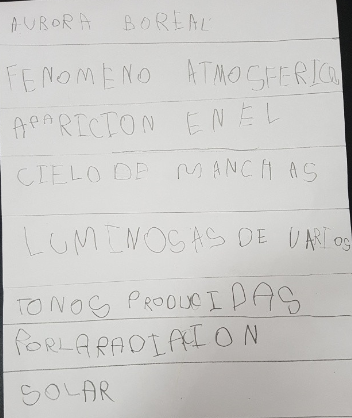 AURORA BOREAL
FENOMENO ATMOSFERICO
APARICION EN EL
CIELO DE MANCHAS
LUMINOSAS DE VARIOS
TONOS PRODUCIDAS
PORLARADIACION
SOLAR